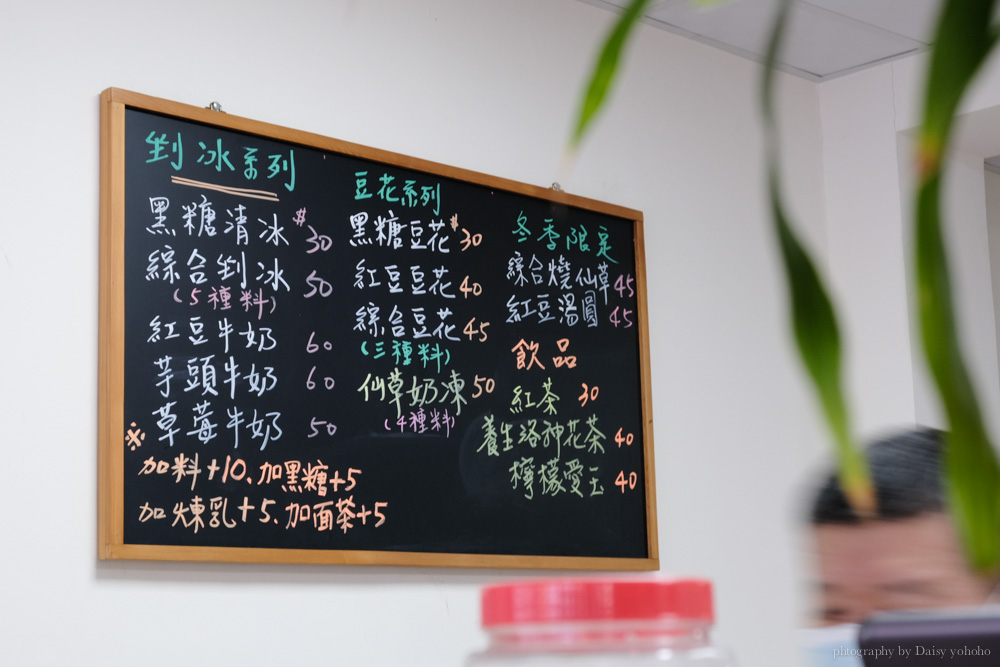 剉冰系列
黑糖清冰 $30
綜合剉冰 50
(5種料)
紅豆牛奶 60
芋頭牛奶 60
※草莓牛奶 50
加料+10、加黑糖+5
加煉乳+5、加面茶+5
豆花系列
黑糖豆花 $30
紅豆豆花 40
綜合豆花 45
(三種料)
仙草奶凍 50
(4種料)
冬季限定
綜合燒仙草 45
紅豆湯圓 45
飲品
紅茶 30
養生洛神花茶 40
檸檬愛玉 40
photography by Daisy yohoho